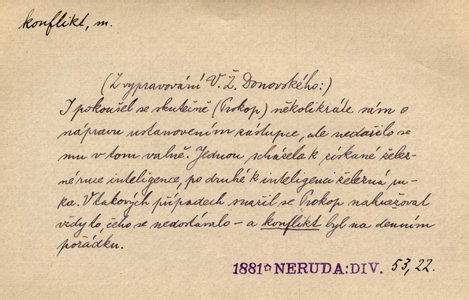 konflikt, m.
(Z vypravování V. Ž. Donovského:)
I pokoušel se skutečně (Prokop) několikráte sám o
nápravu ustanovením zástupce, ale nedařilo se
mu v tom valně. Jednou scházela k získané želez-
né ruce inteligence, po druhé k inteligenci železná ru-
ka. V takových případech snažil se Prokop nahrazovat
vždy to, čeho se nedostávalo – a konflikt byl na denním
pořádku.
1881 NERUDA: DIV. 53, 22.